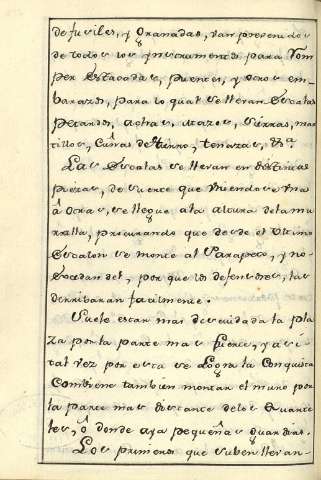 de fusiles, y Granadas, van prevenidos
de todos los ynstrumentos para Rom-
per Estacadas, puentes, y otros em-
barazos, para lo qual se lleran Escalas
Petardos, achas, mazos, Sierras, mar
tillos, Cuñas de Hierro, tenazas, &ª
Las Escalas se lleran en distintas
piezas, de suerte que uniendose una
â Otras, se llegue ala altura dela mu-
ralla, procurando que desde el Ultimo
Escalon se monte al Parapeto, y no-
Excedan del, por que los defensores, las
derribaran facilmente.
Suele estar mas descuidada la pla
za por la parte mas fuerte, y asi
tal vez por esta se Logra la Conquista
Combiene tambien montar el muro por
la parte mas distante delos Quarte
les, ô donde aya pequeñas guardias.
Los primeros que suben lleran-